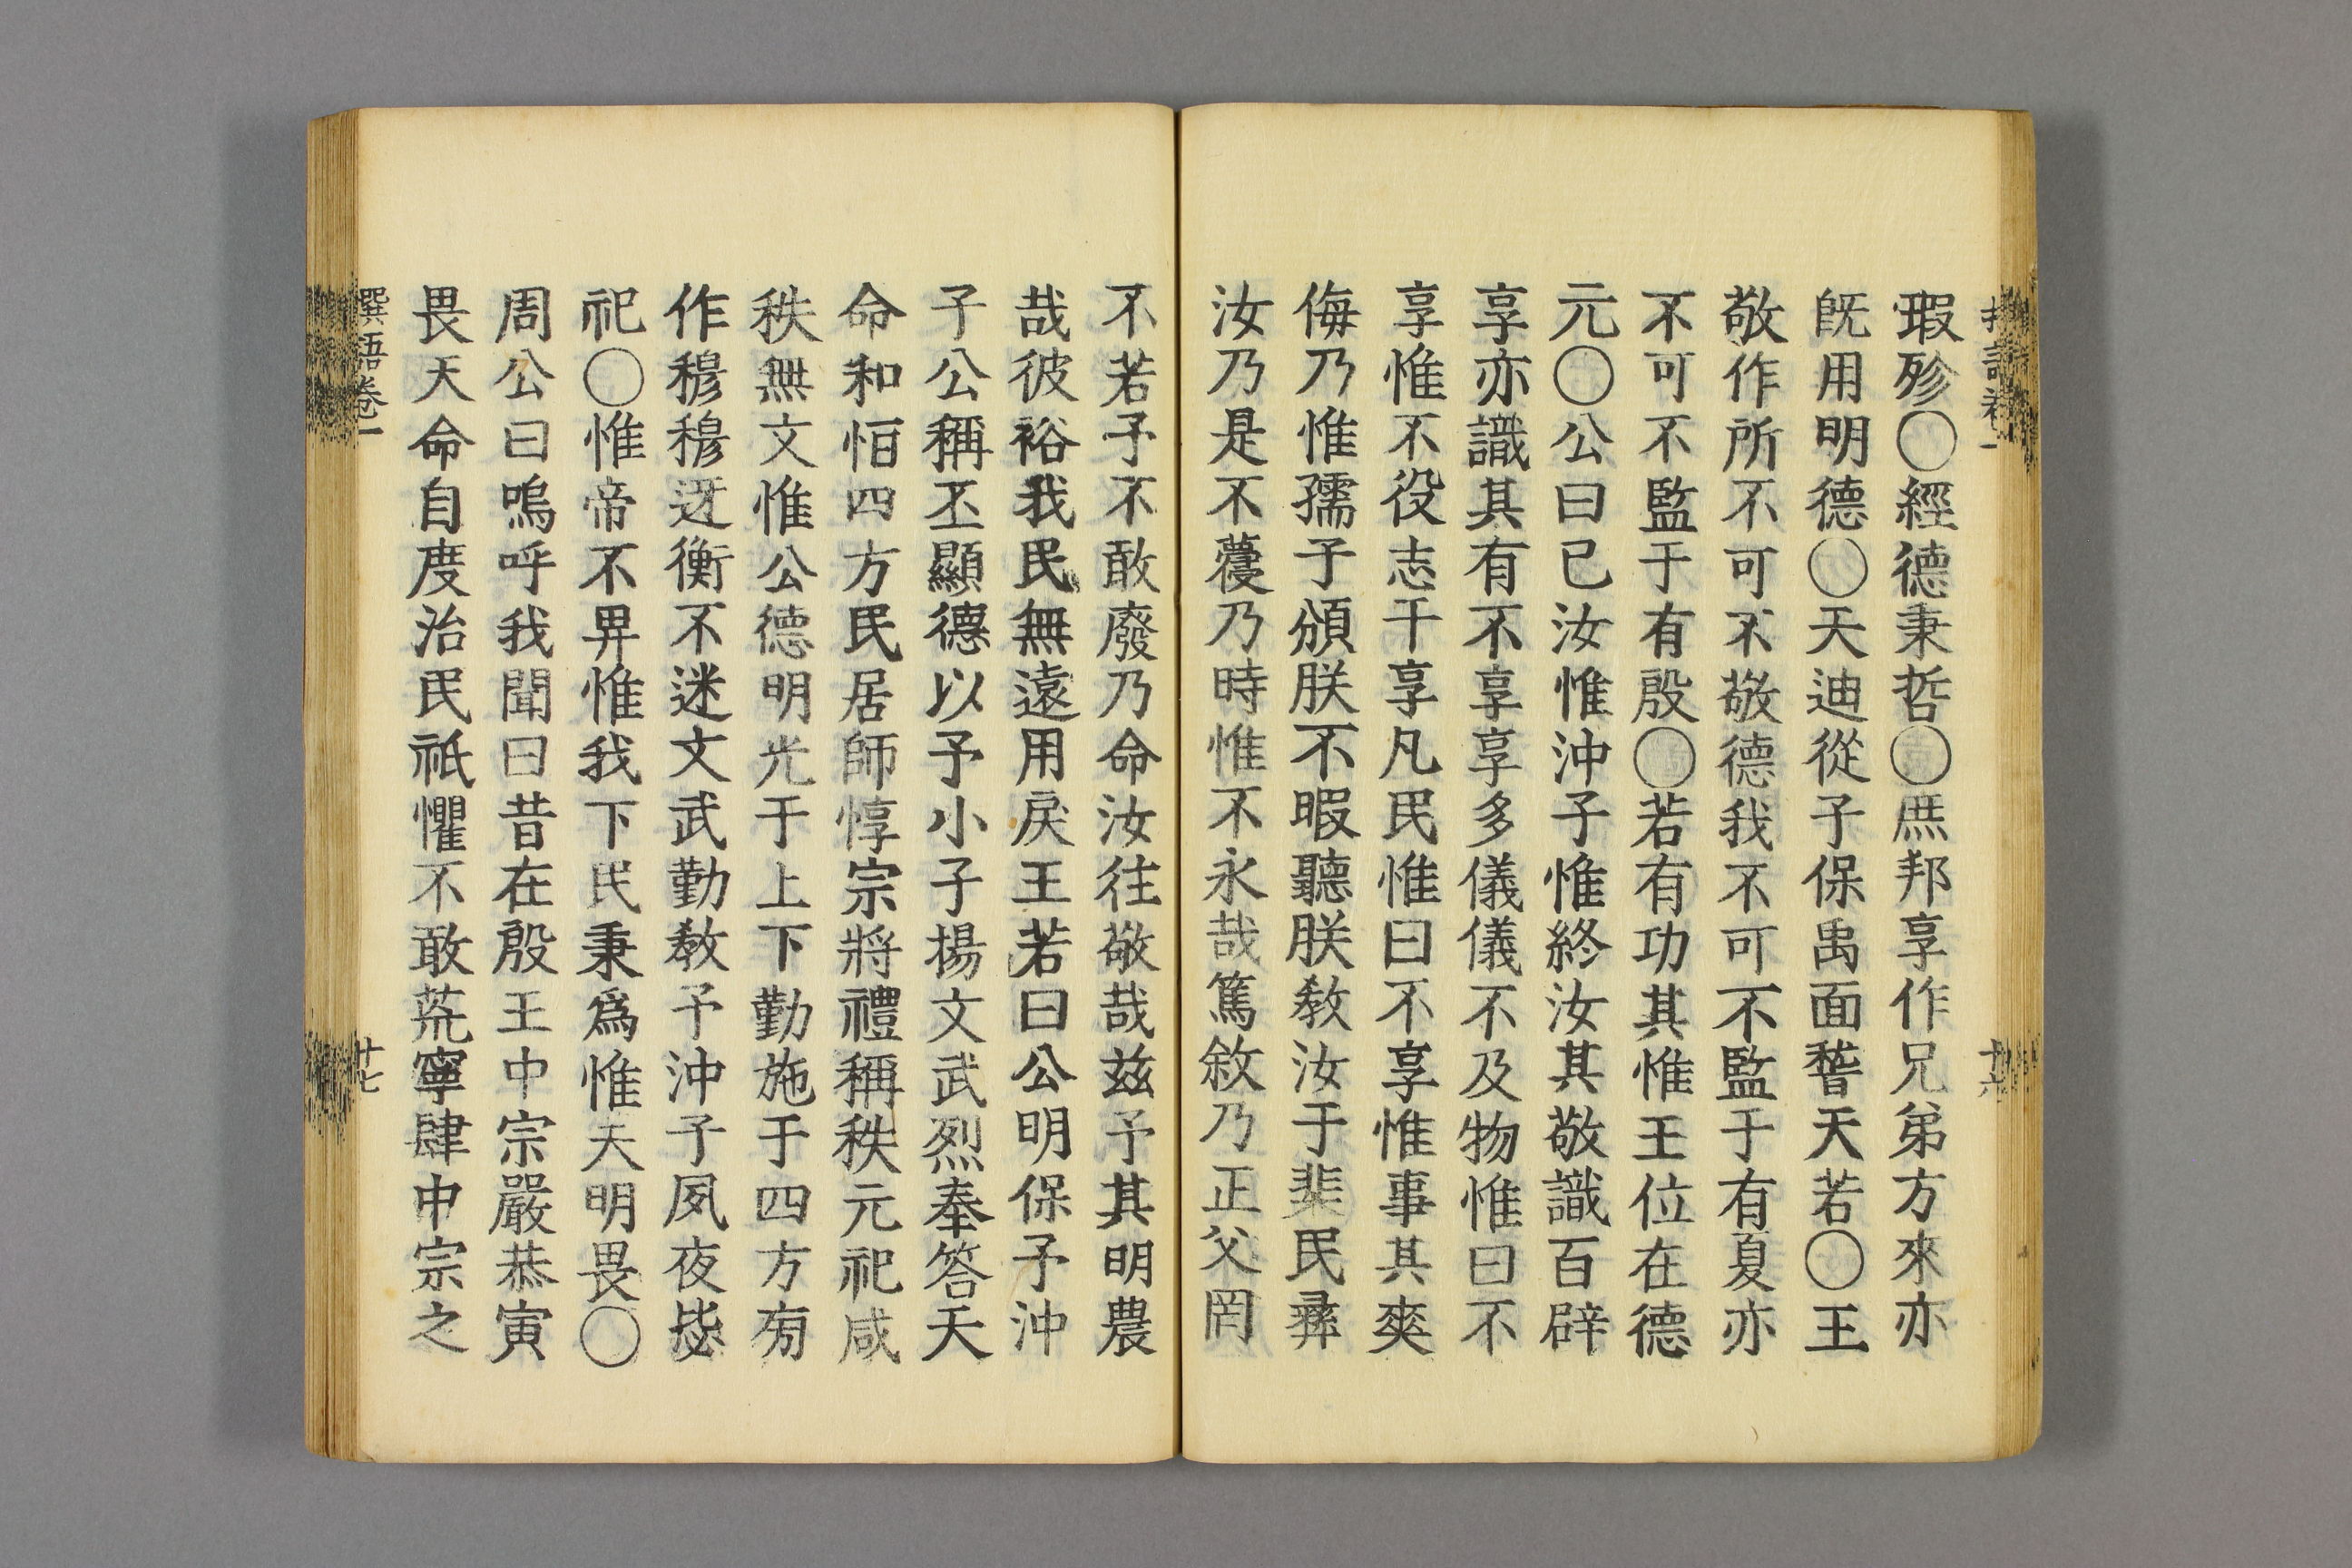 瑕殄○經德秉哲○庶邦享作兄弟方來亦
旣用明德○天迪從子保禹面稽天若○王
敬作所不可不敬德我不可不監于有夏亦
不可不監于有殷○若有功其惟王位在德
元○公曰已汝惟沖子惟終汝其敬識百辟
享亦識其有不享享多儀儀不及物惟曰不
享惟不役志于享凡民惟曰不享惟事其爽
侮乃惟孺子頒朕不暇聽朕教汝于棐民彝
汝乃是不蘉乃時惟不永哉篤敘乃正父罔
不若予不敢廢乃命汝往敬哉茲予其明農
哉彼裕我民無遠用戾王若曰公明保予沖
子公稱丕顯德以予小子揚文武烈奉答天
命和恒四方民居師惇宗將禮稱秩元祀咸
秩無文惟公德明光于上下勤施于四方旁
作穆穆迓衡不迷文武勤教予沖子夙夜毖
祀○惟帝不畀惟我下民秉爲惟天明畏○
周公曰嗚呼我聞曰昔在殷王中宗嚴恭寅
畏天命自度治民祇懼不敢荒寧肆中宗之
譔語卷一
十七